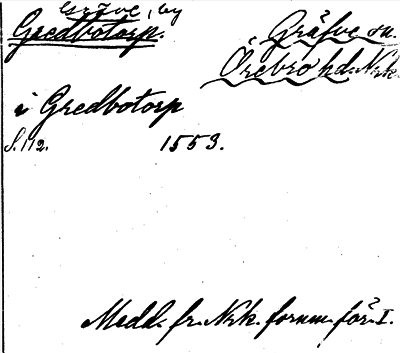 Gräve, by
Gredbotorp.
Gräfve sn.
Örebro hd. Nrk.
i Gredbotorp
S. 112. 1553.
Medd. fr. Nrk. fornm. för. I.